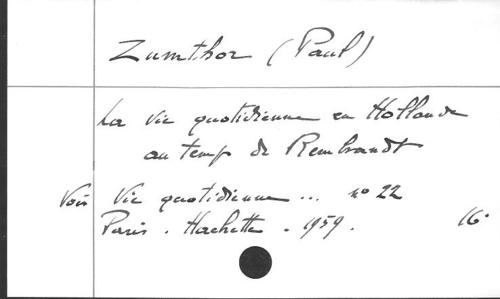 Zumthor (Paul)
La vie quotidienne en Hollande
au temps de Rembrandt
Voir Vie quotidienne ... nº 22
Paris. Hachette. 1959. 16º